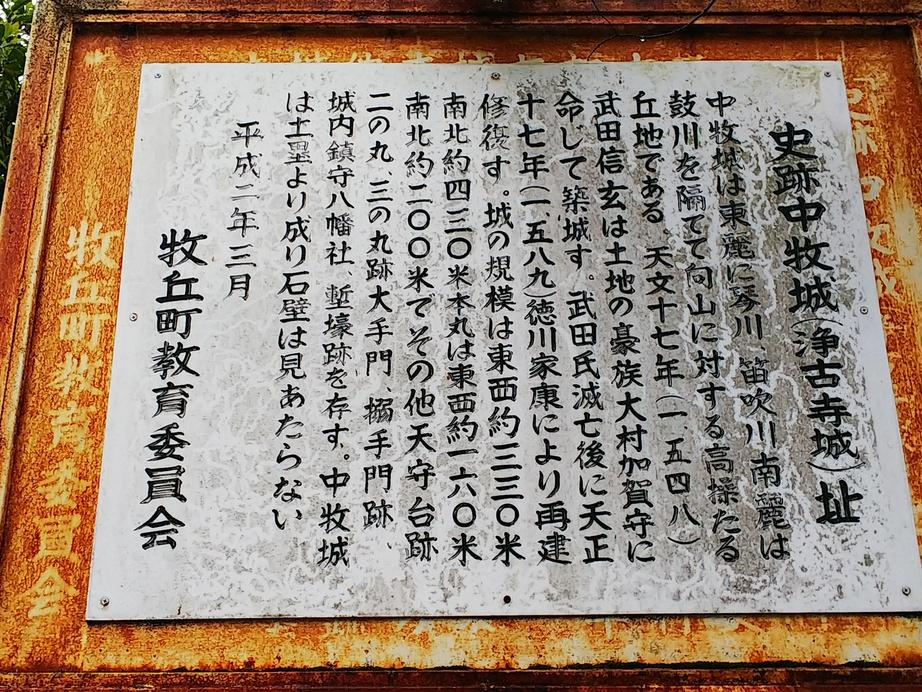 史跡中牧城(浄古寺城)址
中牧城は東麓に琴川 笛吹川 南麓は
鼓川を隔てて向山に対する高操たる
丘地である 天文十七年(一五四八)
武田信玄は土地の豪族大村加賀守に
命じて築城す。武田氏滅亡後に天正
十七年(一五八九)徳川家康により再建
修復す。城の規模は東西約三三〇米
南北約四三〇米本丸は東西約一六〇米
南北約二〇〇米でその他天守台跡
二の丸、三の丸跡大手門、搦手門跡、
城内鎮守八幡社、塹壕跡を存す。中牧城
は土塁より成り石壁は見あたらない
平成二年三月
牧丘町教育委員会
牧丘町教育委員会